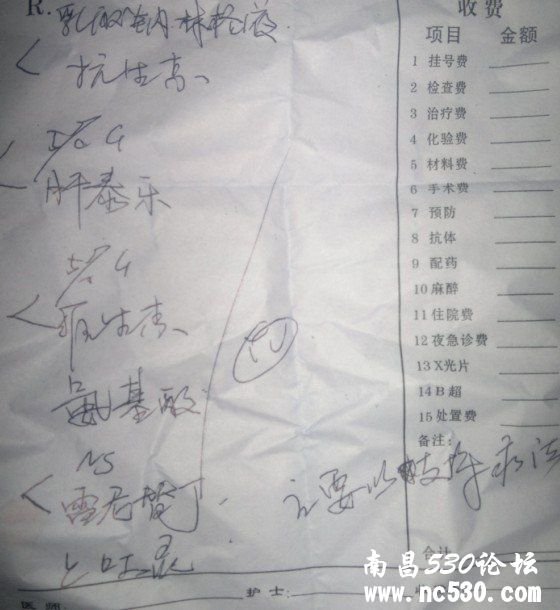 R. 乳酸钠林格液
抗生素
5% G
肝泰乐
5% G
抗生素
氨基酸
NS
雷尼替丁
止吐灵
IV
主要以支持疗法
收费
项目 金额
1 挂号费
2 检查费
3 治疗费
4 化验费
5 材料费
6 手术费
7 预防
8 抗体
9 配药
10 麻醉
11 住院费
12 夜急诊费
13 X光片
14 B超
15 处置费
备注:
合计
医师: 护士:
南昌530论坛
www.nc530.com